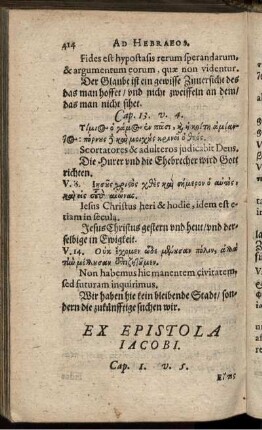 414 AD HEBRAEOS.
Fides est hypostasis rerum sperandarum,
& argumentum eorum, quæ non videntur.
Der Glaube ist ein gewisse Zuversicht des
das man hoffet/ vnd nicht zweiffeln an dem/
das man nicht sihet.
Cap. 13. v. 4.
Τίμιος ὁ γάμος ἐν πᾶσι, καὶ ἡ κοίτη ἀμίαντος·
πόρνους καὶ μοιχοὺς κρινεῖ ὁ θεός.
Scortatores & adulteros judicabit Deus.
Die Hurer vnd die Ehebrecher wird Gott
richten.
V. 8. Ἰησοῦς χριστὸς χθὲς καὶ σήμερον ὁ αὐτὸς,
καὶ εἰς τοὺς αἰῶνας.
Iesus Christus heri & hodie, idem est etiam
in secula.
Jesus Christus gestern vnd heut/ vnd derselbige
in Ewigkeit.
V. 14. Οὐκ ἔχομεν ὧδε μένουσαν πόλιν, ἀλλὰ
τὴν μέλλουσαν ἐπιζητοῦμεν.
Non habemus hîc manentem civitatem,
sed futuram inquirimus.
Wir haben hie kein bleibende Stadt/ sondern
die zukünfftige suchen wir.
EX EPISTOLA
IACOBI.
Cap. 1. v. 5.